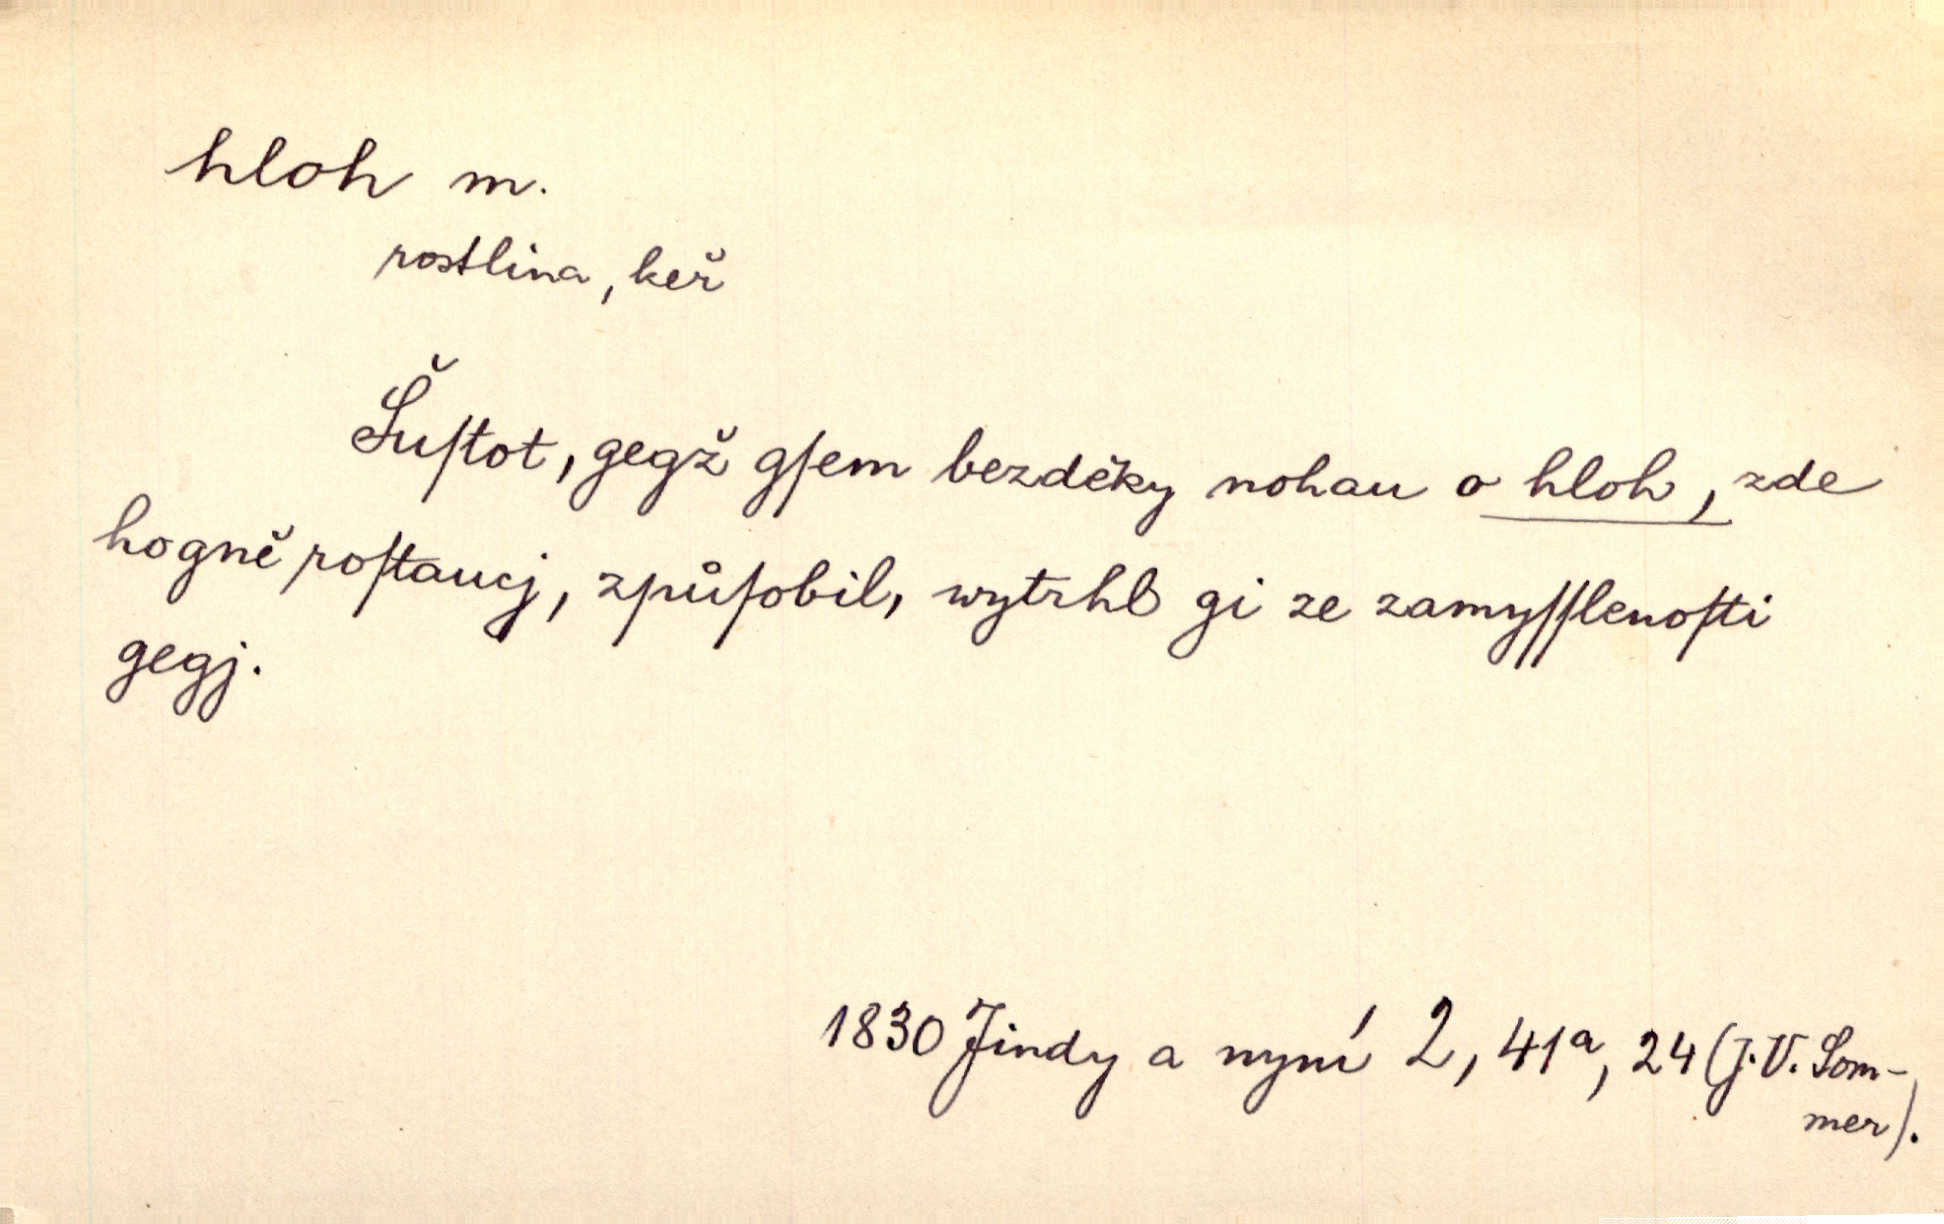 hloh m.
rostlina, keř
Šuſtot, gegž gſem bezděky nohau o hloh, zde
hogně roſtaucj, zpuͦſobil, wytrhl gi ze zamyſſlenoſti
gegj.
1830 Jindy a nyní 2, 41ᵃ, 24 (J. V. Som-
mer).